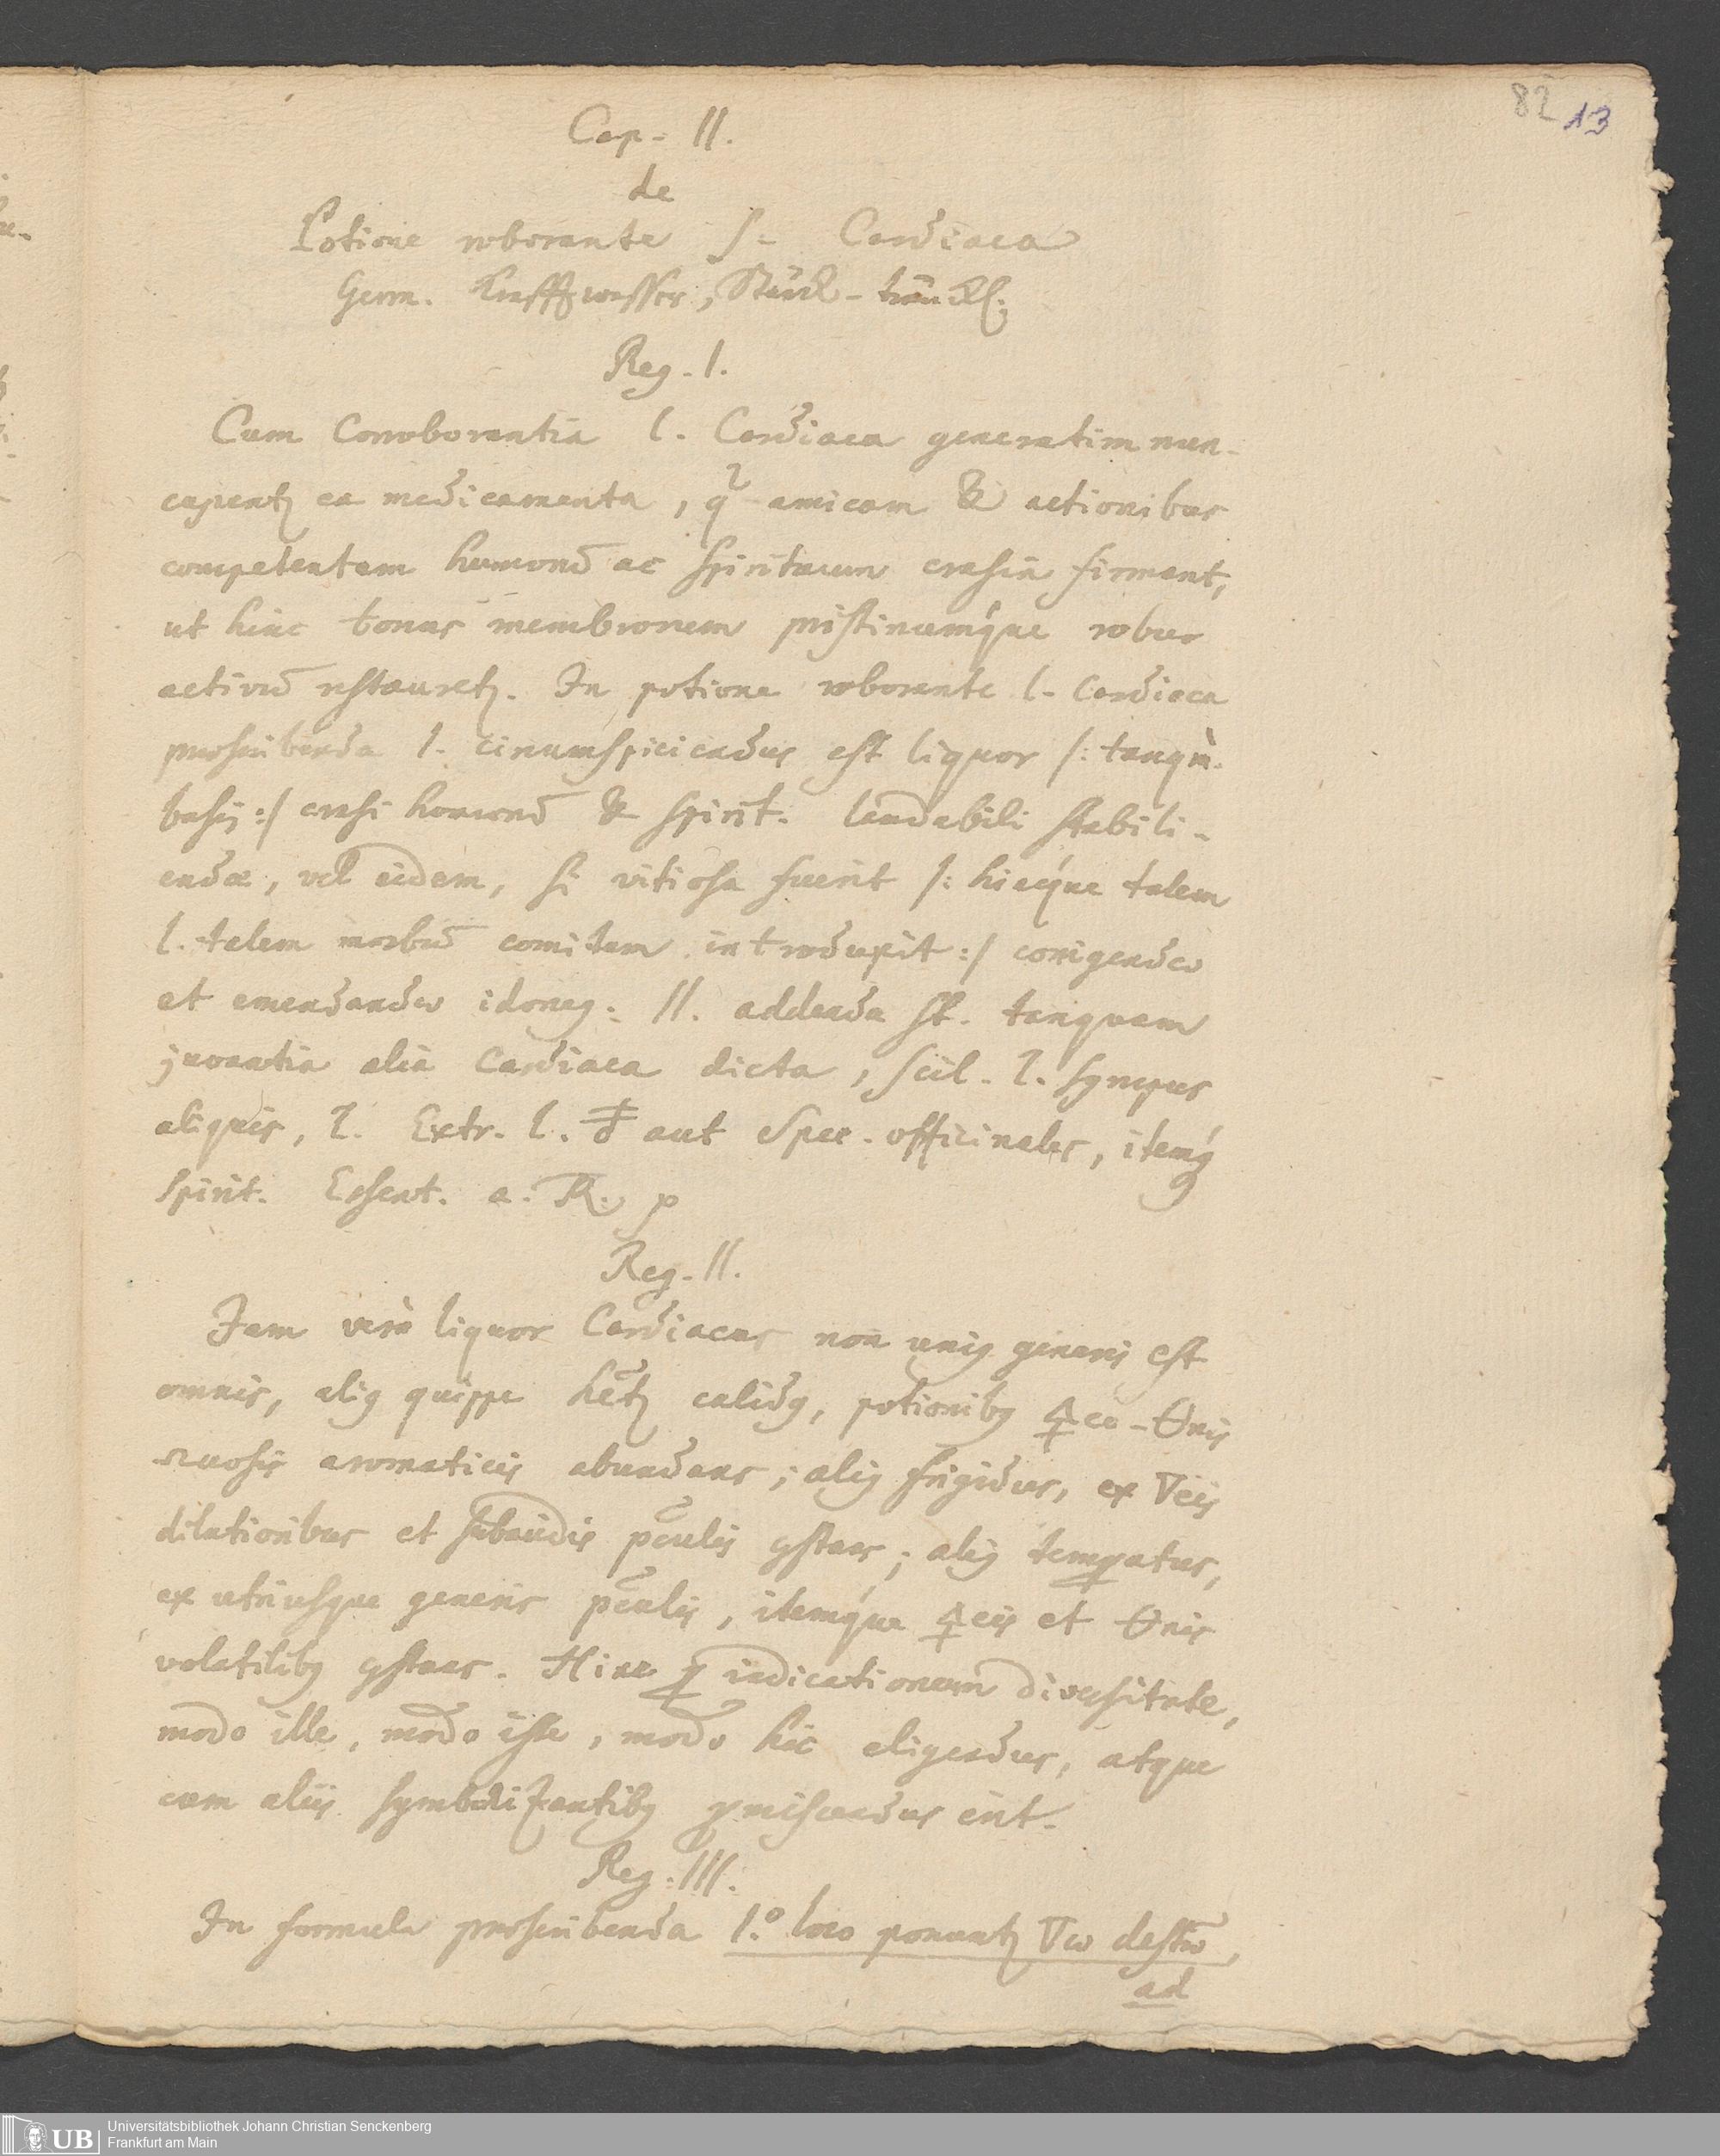 82 13
Cap. II.
de
Potione roborante s. Cardiaca
Germ. Krafftwasser, Stärck-tränckl.
Reg. I.
Cum Corroborantia l. Cardiaca generatim nun-
cupentʒ ea medicamenta, q̃ amicam & actionibus
competentem humorũ ac spirituum crasin firmant,
ut hinc tonus membrorum pristinumq́ue robur
activũ restauretʒ. In potione roborante l. Cardiaca
præscribenda I. circumspiciendus est liquor /: tanqù.
basis :/ crasi humorũ & spirit. laudabili stabili-
endæ, vel eidem, si vitiosa fuerit /: hicq́ue talem
l. talem morbũ comitem introduxit :/ corrigendæ
et emendandæ idoneꝯ: II. addenda st. tanquam
juvantia alia Cardiaca dicta, scil. l. syrupus
aliquis, l. Extr. l. ♁ aut Spec. officinales, itemq́
spirit. Essent. a. R. p
Reg. II.
Jam verò liquor Cardiacus non uniꝯ generis est
omnis, aliꝯ quippe hẽtʒ calidꝯ, potionibꝯ 🜍eo-🜔nis
rũosis aromaticis abundans; aliꝯ frigidus, ex 🜄eis
dilutioribus et subacidis pc̃ulis ꝯstans; aliꝯ temꝑatus,
ex utriusque generis pc̃ulis, itemq́ue 🜍eis et 🜔nis
volatilibꝯ ꝯstans. Hinc ꝓ indicationum diversitate,
modo ille, modo iste, modo hic eligendus, atque
cum aliis symbolizantibꝯ ꝑmiscendus erit.
Reg. III.
In formula præscribenda 1.º loco ponuntʒ 🜄æ destĩæ,
ad
Universitätsbibliothek Johann Christian Senckenberg
Frankfurt am Main
UB